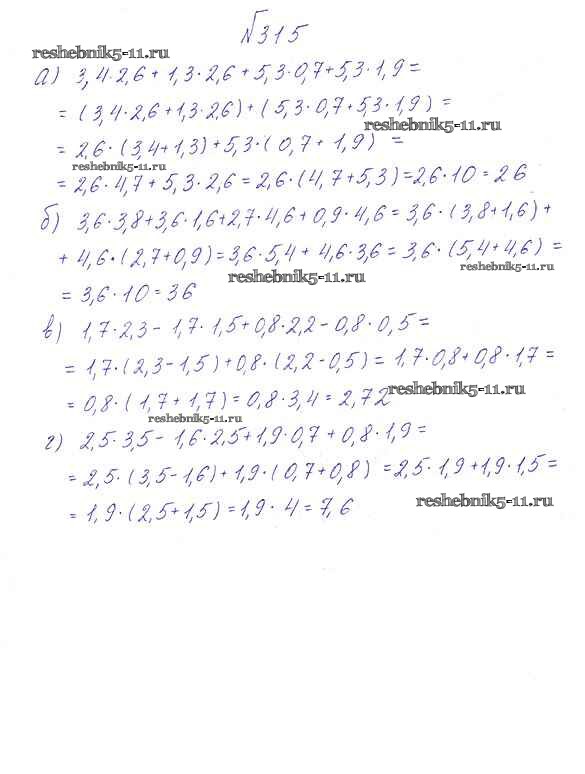 №315
reshebnik5-11.ru
а) 3,4·2,6 + 1,3·2,6 + 5,3·0,7 + 5,3·1,9 =
= (3,4·2,6 + 1,3·2,6) + (5,3·0,7 + 5,3·1,9) =
reshebnik5-11.ru
= 2,6·(3,4 + 1,3) + 5,3·(0,7 + 1,9) =
reshebnik5-11.ru
= 2,6·4,7 + 5,3·2,6 = 2,6·(4,7 + 5,3) = 2,6·10 = 26
б) 3,6·3,8 + 3,6·1,6 + 2,7·4,6 + 0,9·4,6 = 3,6·(3,8 + 1,6) +
+ 4,6·(2,7 + 0,9) = 3,6·5,4 + 4,6·3,6 = 3,6·(5,4 + 4,6) =
reshebnik5-11.ru
reshebnik5-11.ru
= 3,6·10 = 36
в) 1,7·2,3 - 1,7·1,5 + 0,8·2,2 - 0,8·0,5 =
= 1,7·(2,3 - 1,5) + 0,8·(2,2 - 0,5) = 1,7·0,8 + 0,8·1,7 =
reshebnik5-11.ru
= 0,8·(1,7 + 1,7) = 0,8·3,4 = 2,72
reshebnik5-11.ru
г) 2,5·3,5 - 1,6·2,5 + 1,9·0,7 + 0,8·1,9 =
= 2,5·(3,5 - 1,6) + 1,9·(0,7 + 0,8) = 2,5·1,9 + 1,9·1,5 =
reshebnik5-11.ru
= 1,9·(2,5 + 1,5) = 1,9·4 = 7,6